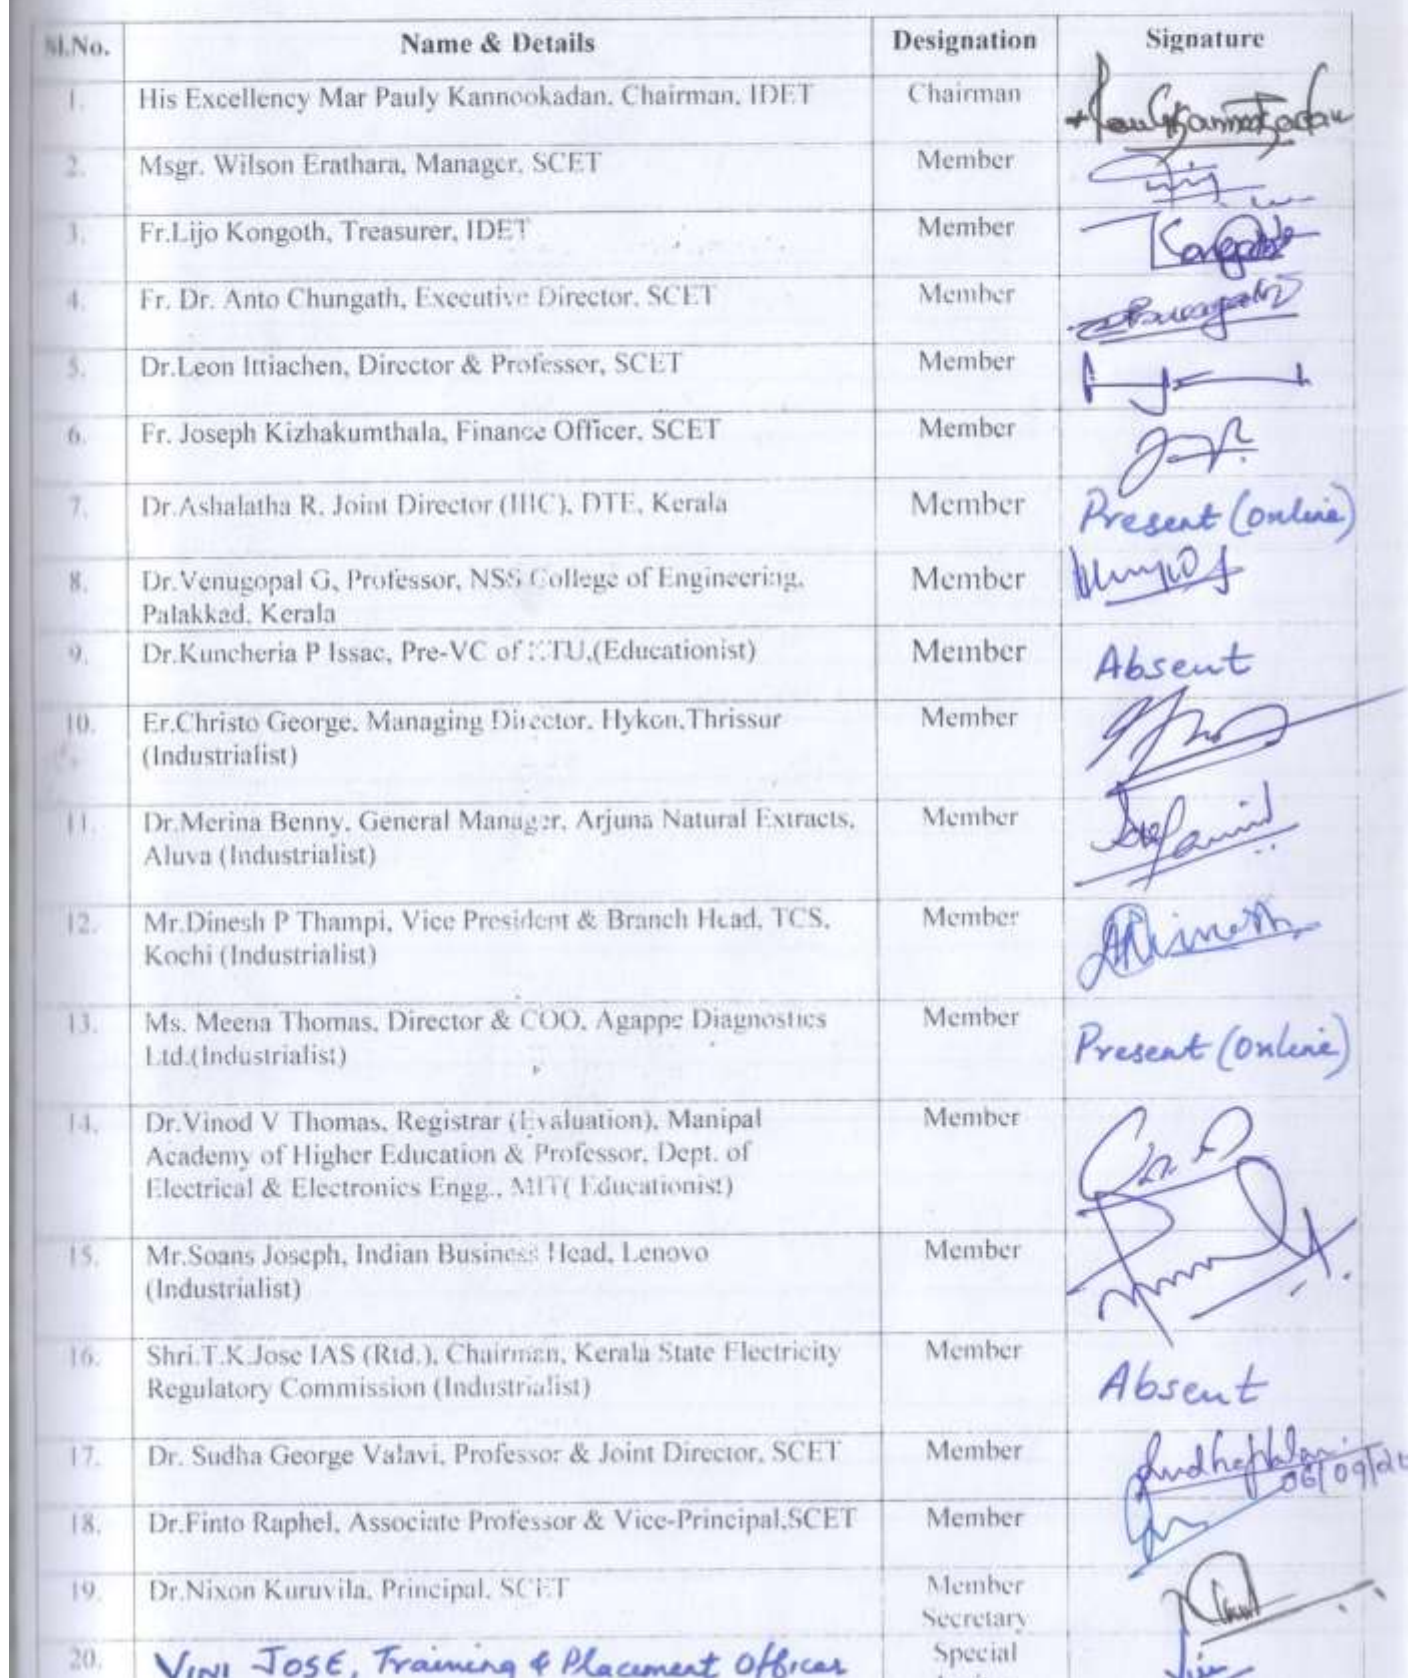 Sl.No. Name & Details Designation Signature
1. His Excellency Mar Pauly Kannookadan, Chairman, IDET Chairman
2. Msgr. Wilson Erathara, Manager, SCET Member
3. Fr.Lijo Kongoth, Treasurer, IDET Member
4. Fr. Dr. Anto Chungath, Executive Director, SCET Member
5. Dr.Leon Ittiachen, Director & Professor, SCET Member
6. Fr. Joseph Kizhakumthala, Finance Officer, SCET Member
7. Dr.Ashalatha R, Joint Director (IHC), DTE, Kerala Member Present (online)
8. Dr.Venugopal G, Professor, NSS College of Engineering, Member
Palakkad, Kerala
9. Dr.Kuncheria P Issac, Pre-VC of KTU,(Educationist) Member Absent
10. Er.Christo George, Managing Director, Hykon,Thrissur Member
(Industrialist)
11. Dr.Merina Benny, General Manager, Arjuna Natural Extracts, Member
Aluva (Industrialist)
12. Mr.Dinesh P Thampi, Vice President & Branch Head, TCS, Member
Kochi (Industrialist)
13. Ms. Meena Thomas, Director & COO, Agappe Diagnostics Member Present (online)
Ltd.(Industrialist)
14. Dr.Vinod V Thomas, Registrar (Evaluation), Manipal Member
Academy of Higher Education & Professor, Dept. of
Electrical & Electronics Engg., MIT( Educationist)
15. Mr.Soans Joseph, Indian Business Head, Lenovo Member
(Industrialist)
16. Shri.T.K.Jose IAS (Rtd.), Chairman, Kerala State Electricity Member Absent
Regulatory Commission (Industrialist)
17. Dr. Sudha George Valavi, Professor & Joint Director, SCET Member
06/09/20
18. Dr.Finto Raphel, Associate Professor & Vice-Principal,SCET Member
19. Dr.Nixon Kuruvila, Principal, SCET Member
Secretary
20. VINI JOSE, Training & Placement Officer Special